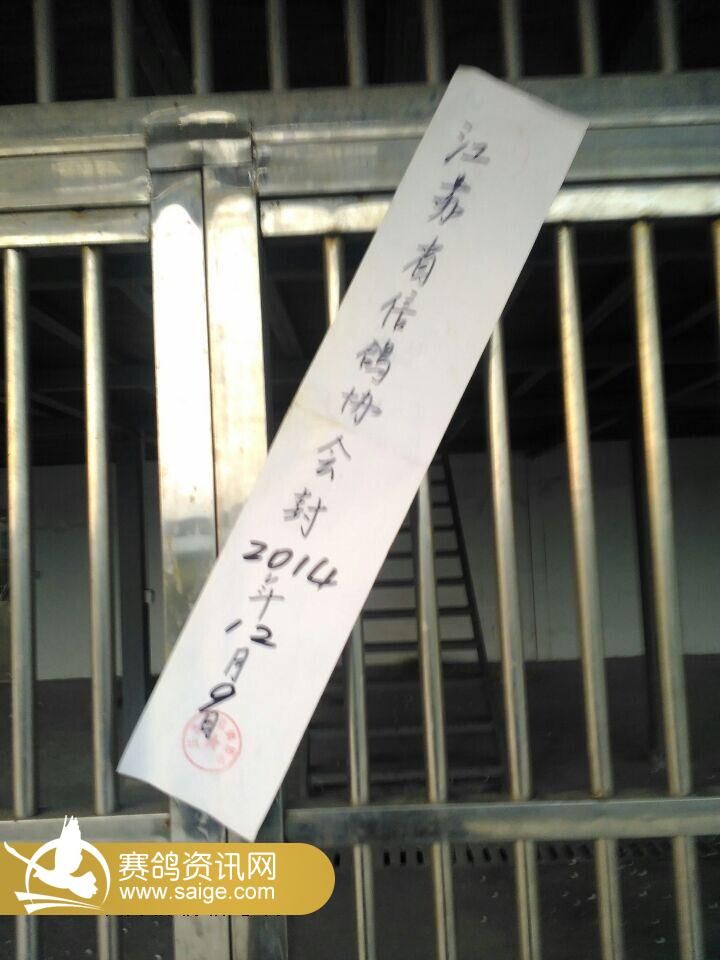 江苏省信鸽协会封
2014年12月9日
赛鸽资讯网
www.saige.com